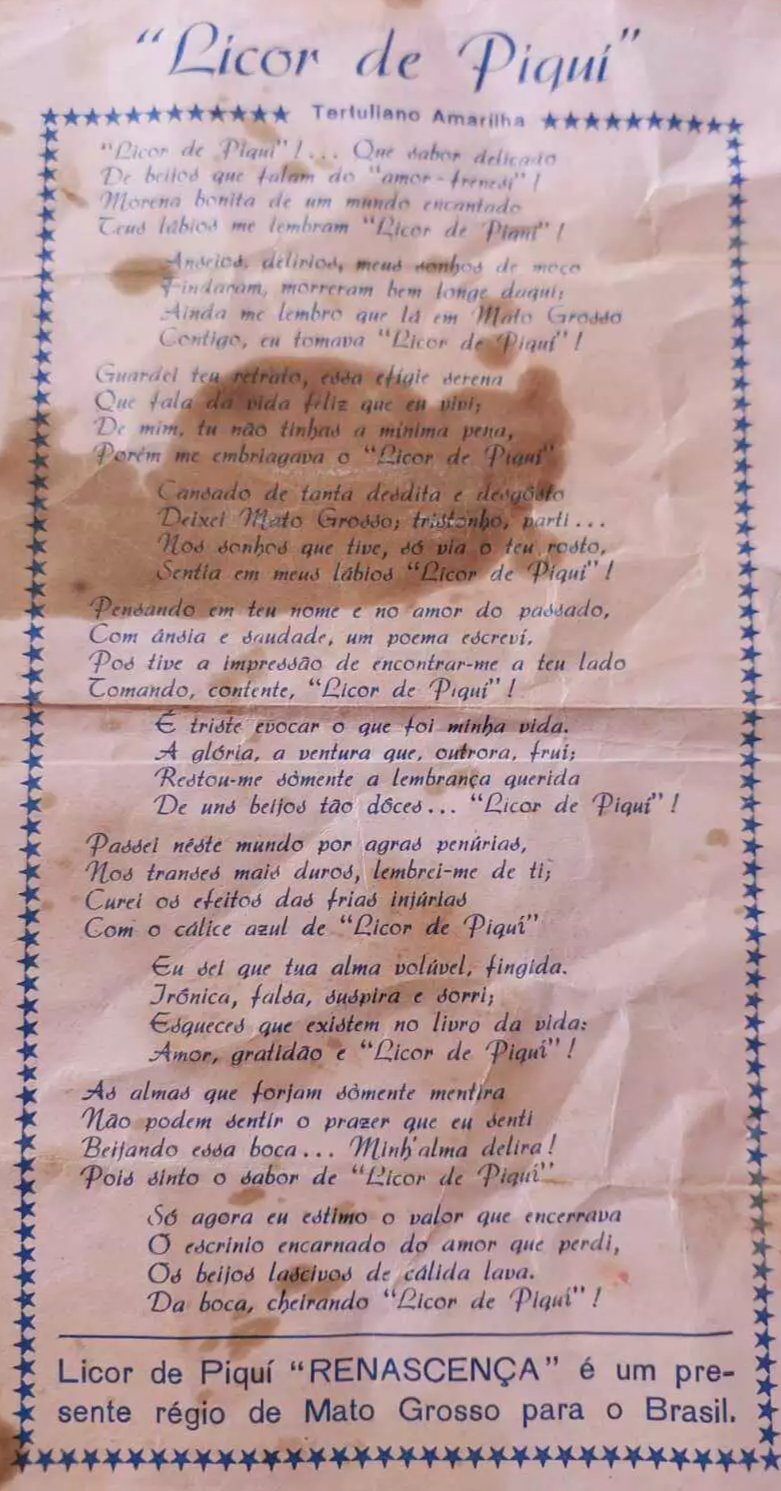 "Licor de Piquí"
Tertuliano Amarilha
"Licor de Piquí"!... Que sabor delicado
De beijos que falam do "amor-frenesí"!
Morena bonita de um mundo encantado
Teus lábios me lembram "Licor de Piquí"!
Anseios, delírios, meus sonhos de moço
Findaram, morreram bem longe daqui;
Ainda me lembro que lá em Mato Grosso
Contigo, eu tomava "Licor de Piquí"!
Guardei teu retrato, essa efígie serena
Que fala da vida feliz que eu vivi;
De mim, tu não tinhas a mínima pena,
Porém me embriagava o "Licor de Piquí"
Cansado de tanta desdita e desgôsto
Deixei Mato Grosso; tristonho, parti...
Nos sonhos que tive, só via o teu rosto,
Sentia em meus lábios "Licor de Piquí"!
Pensando em teu nome e no amor do passado,
Com ânsia e saudade, um poema escreví,
Pos tive a impressão de encontrar-me a teu lado
Tomando, contente, "Licor de Piquí"!
É triste evocar o que foi minha vida.
A glória, a ventura que, outrora, fruí;
Restou-me sòmente a lembrança querida
De uns beijos tão dôces... "Licor de Piquí"!
Passei nêste mundo por agras penúrias,
Nos transes mais duros, lembrei-me de ti;
Curei os efeitos das frias injúrias
Com o cálice azul de "Licor de Piquí"
Eu sei que tua alma volúvel, fingida.
Irônica, falsa, suspira e sorri;
Esqueces que existem no livro da vida:
Amor, gratidão e "Licor de Piquí"!
As almas que forjam sòmente mentira
Não podem sentir o prazer que eu senti
Beijando essa boca... Minh'alma delira!
Pois sinto o sabor de "Licor de Piquí"
Só agora eu estimo o valor que encerrava
O escrinio encarnado do amor que perdi,
Os beijos lascivos de cálida lava.
Da boca, cheirando "Licor de Piquí"!
Licor de Piquí "RENASCENÇA" é um pre-
sente régio de Mato Grosso para o Brasil.